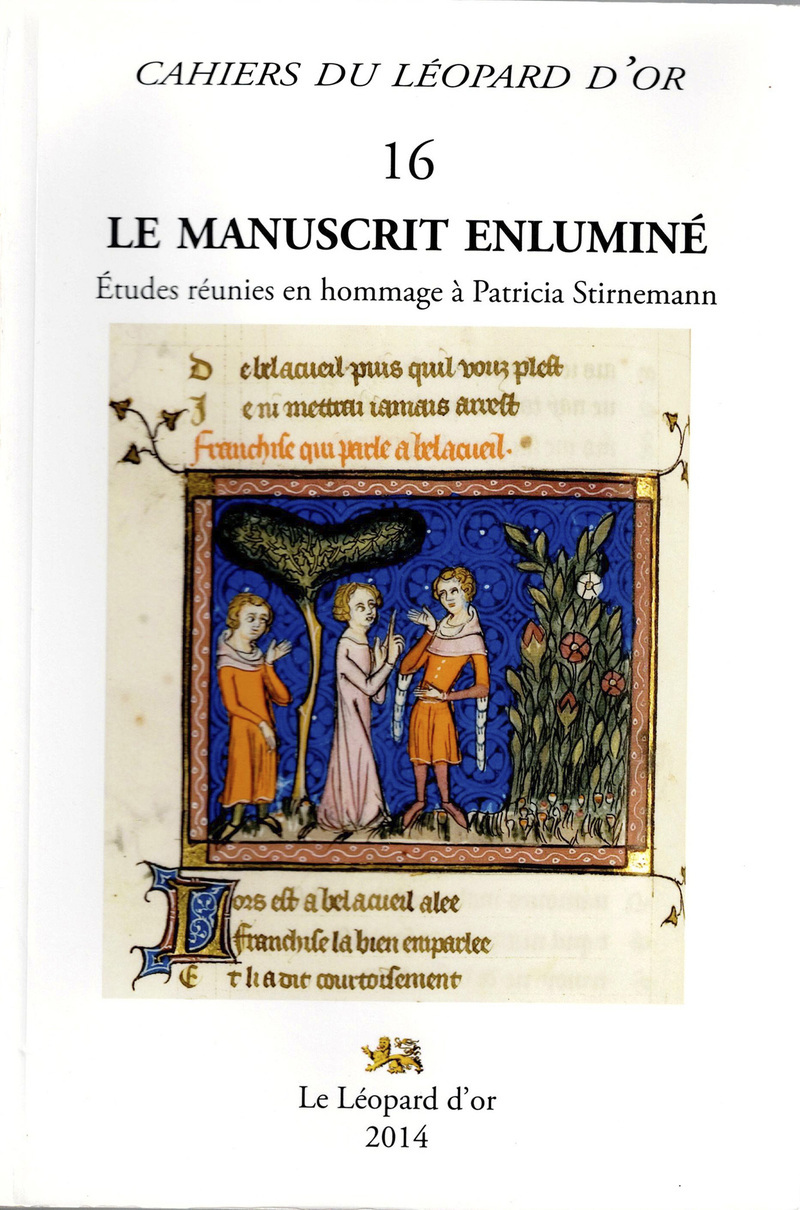 CAHIERS DU LÉOPARD D'OR
16
LE MANUSCRIT ENLUMINÉ
Études réunies en hommage à Patricia Stirnemann
D e bel acueil puis quil vouz plest
J e ni mettrai iamais arrest
Franchise qui parle a bel acueil.
Lors est a bel acueil alee
Franchise la bien emparlee
E t li a dit courtoisement
Le Léopard d'or
2014